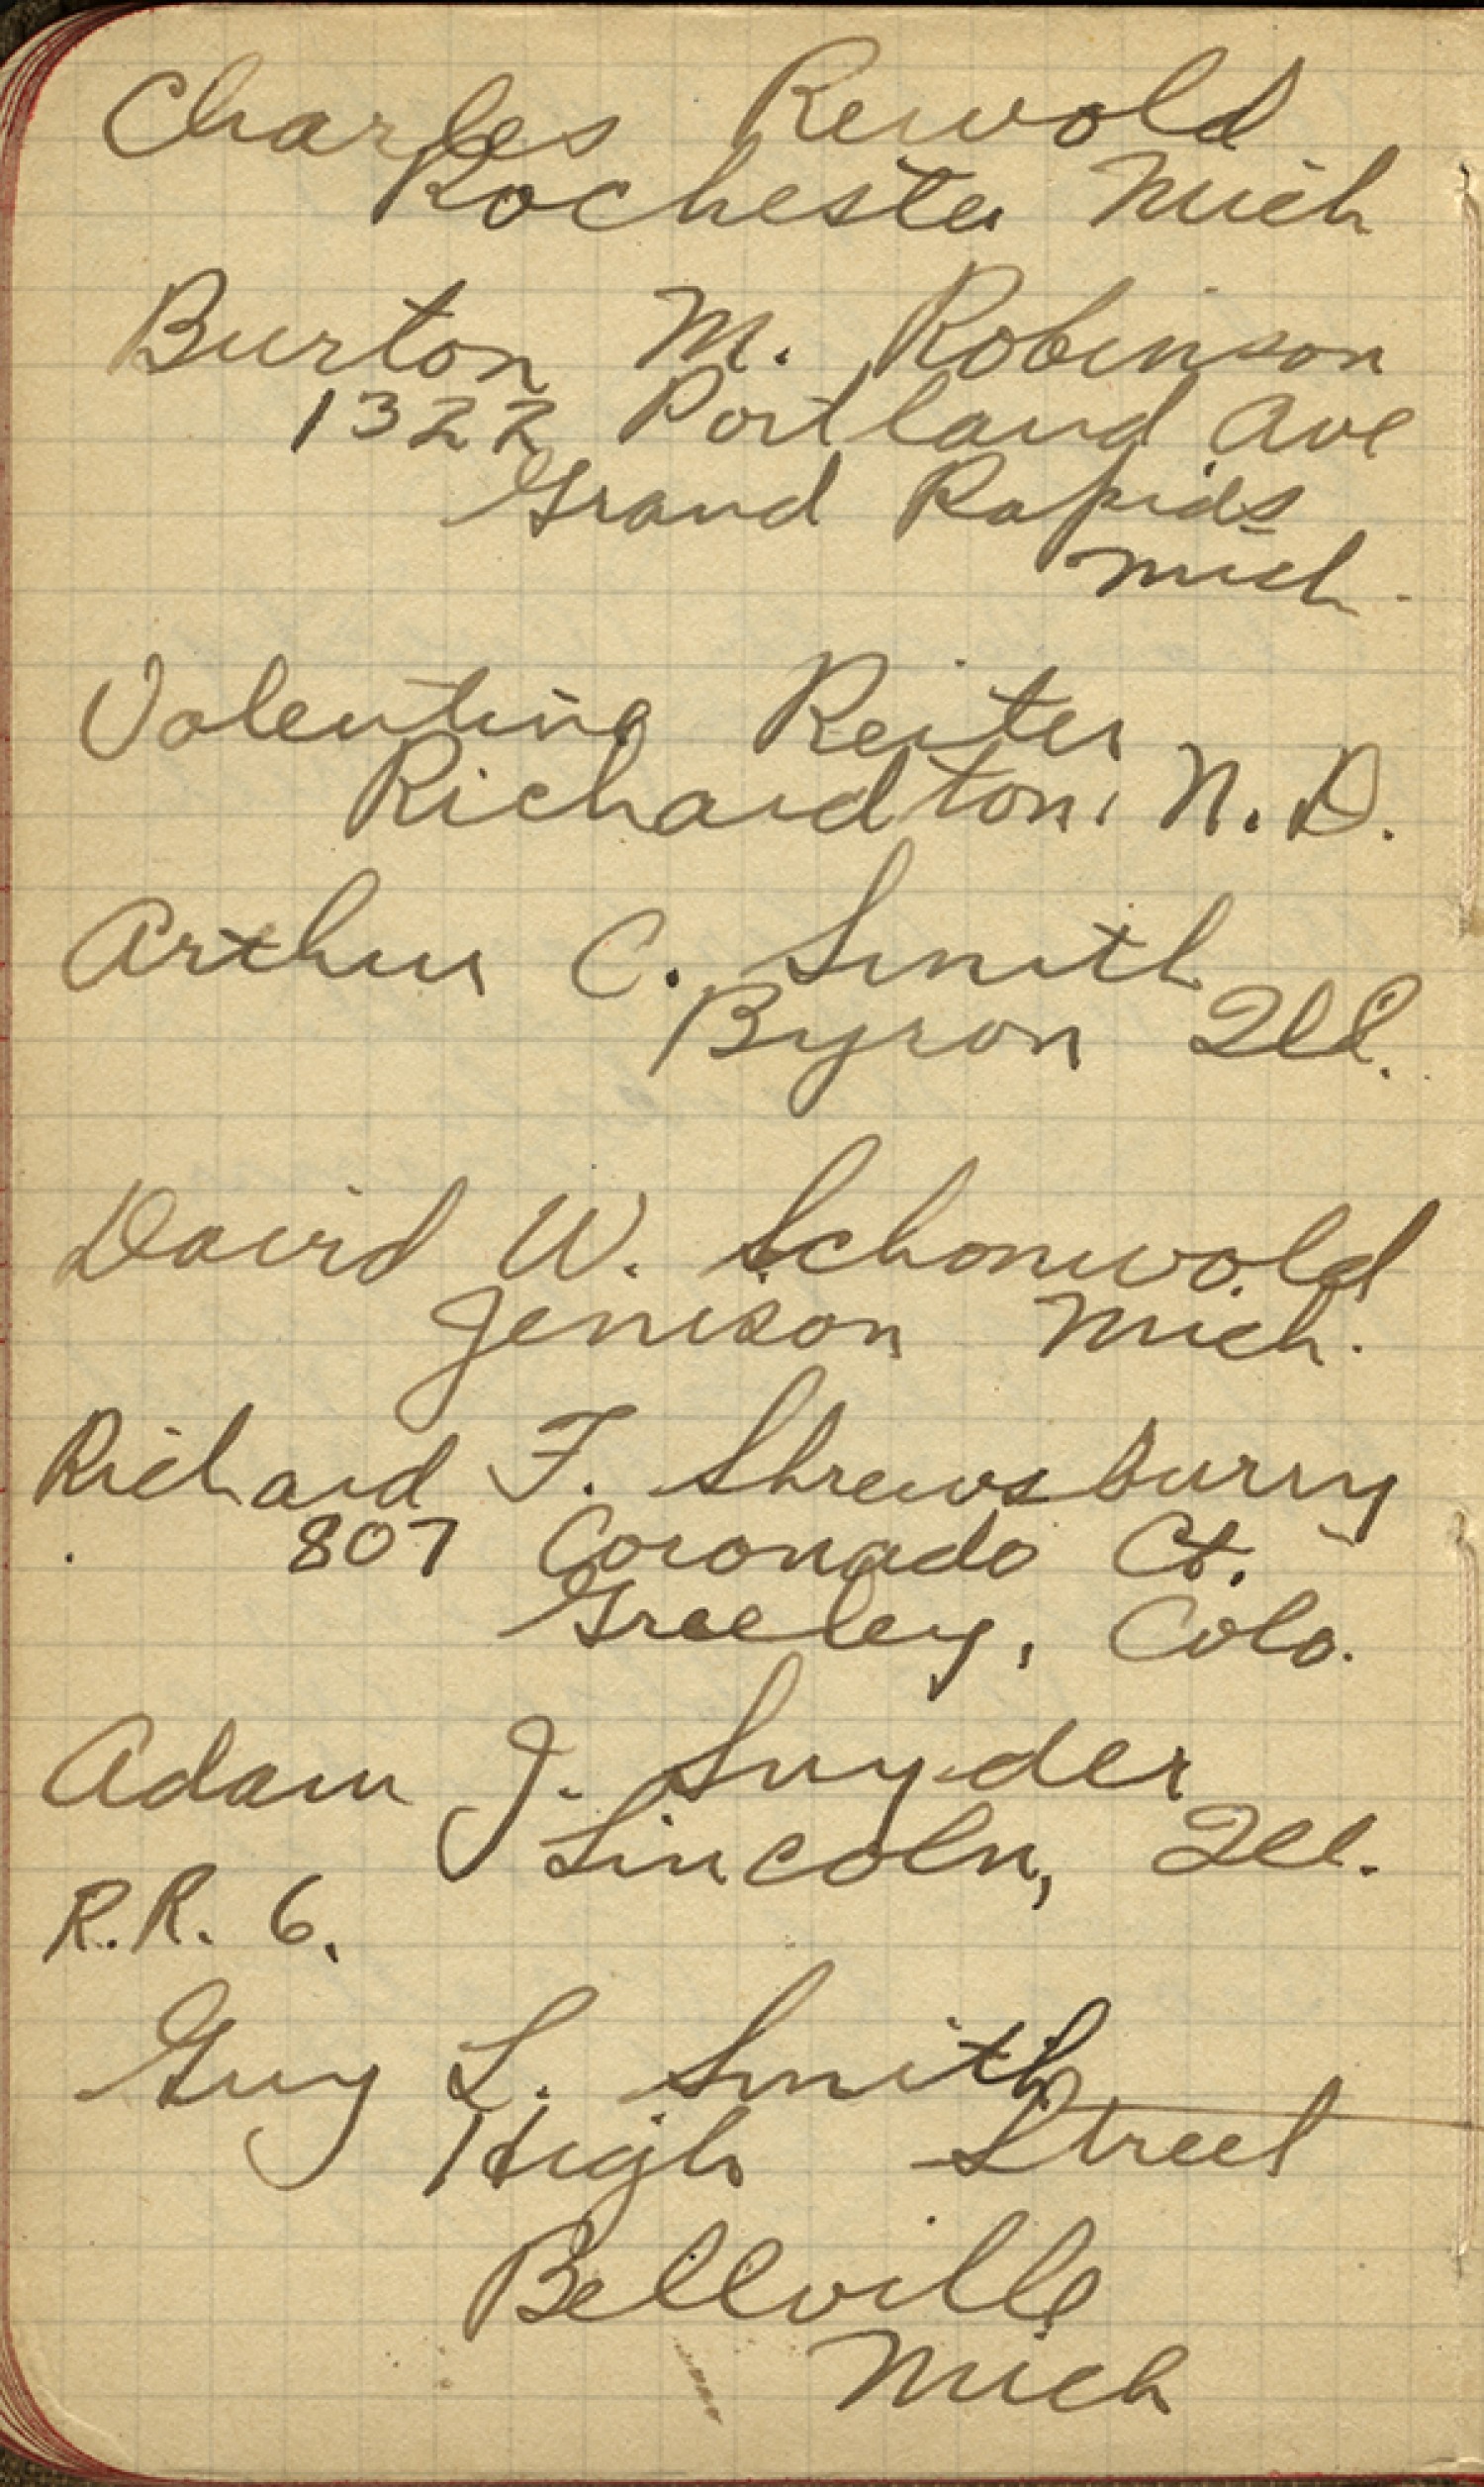 Charles Rewold
Rochester Mich
Burton M. Robinson
1322 Portland Ave
Grand Rapids
Mich.
Valentine Reiter
Richardton, N. D.
Arthur C. Smith
Byron Ill.
David W. Schonwold
Jenison Mich.
Richard F. Shrewsburry
807 Coronado Ct.
Greeley, Colo.
Adam J. Snyder
Lincoln, Ill.
R.R. 6.
Guy L. Smith
High Street
Bellville
Mich